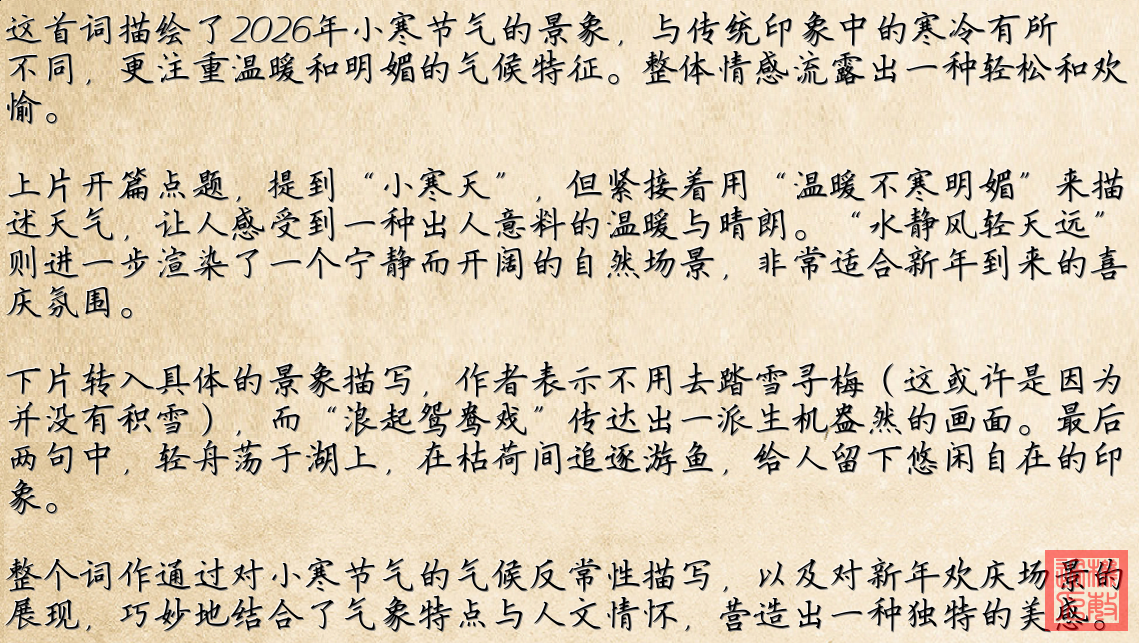 这首词描绘了2026年小寒节气的景象，与传统印象中的寒冷有所
不同，更注重温暖和明媚的气候特征。整体情感流露出一种轻松和欢
愉。
上片开篇点题，提到“小寒天”，但紧接着用“温暖不寒明媚”来描
述天气，让人感受到一种出人意料的温暖与晴朗。“水静风轻天远”
则进一步渲染了一个宁静而开阔的自然场景，非常适合新年到来的喜
庆氛围。
下片转入具体的景象描写，作者表示不用去踏雪寻梅（这或许是因为
并没有积雪），而“浪起鸳鸯戏”传达出一派生机盎然的画面。最后
两句中，轻舟荡于湖上，在枯荷间追逐游鱼，给人留下悠闲自在的印
象。
整个词作通过对小寒节气的气候反常性描写，以及对新年欢庆场景的
展现，巧妙地结合了气象特点与人文情怀，营造出一种独特的美感。